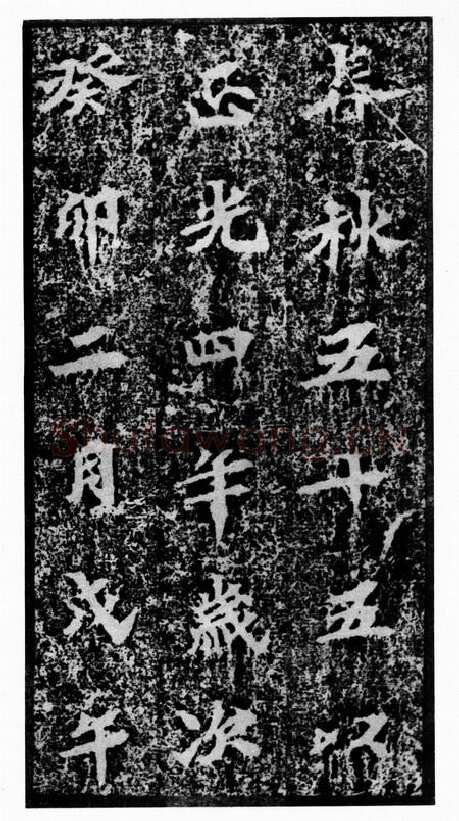 春秋五十五以
正光四年歲次
癸卯二月戊午